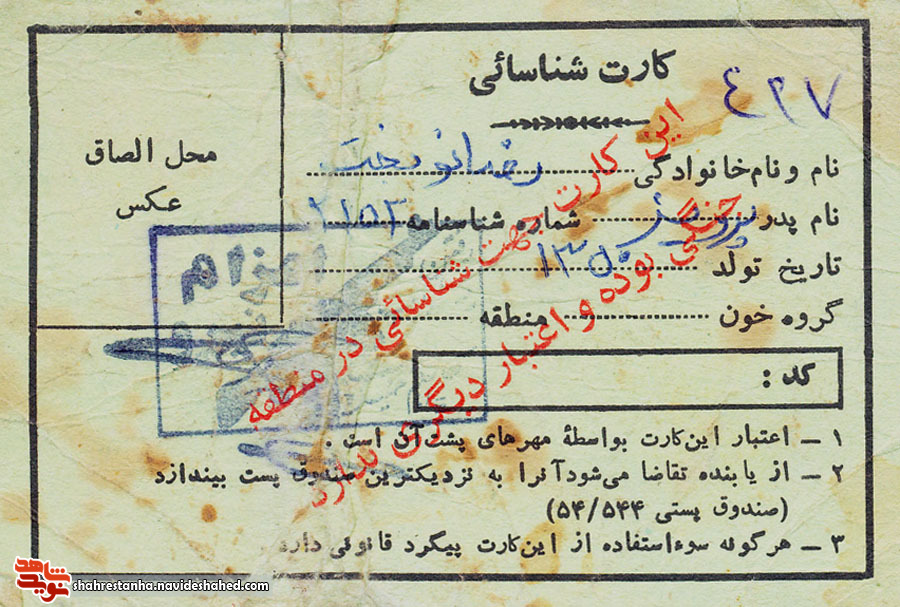 کارت شناسائی
۴۳۷
محل الصاق
عکس
نام و نام‌خانوادگی رضا نوبخت
نام پدر شماره شناسنامه ۲۱۵۳
تاریخ تولد ۱۳۵۰
گروه خون منطقه
کد :
اعزام
این کارت جهت شناسائی در منطقه
جنگی بوده و اعتبار دیگری ندارد
۱ ـ اعتبار این‌کارت بواسطهٔ مهرهای پشت‌آن است .
۲ ـ از یابنده تقاضا می‌شود آنرا به نزدیکترین صندوق پست بیندازد
(صندوق پستی ۵۴/۵۴۴)
۳ ـ هرگونه سوءاستفاده از این‌کارت پیگرد قانونی دارد
شاهد
نوید
shahrestanha.navideshahed.com